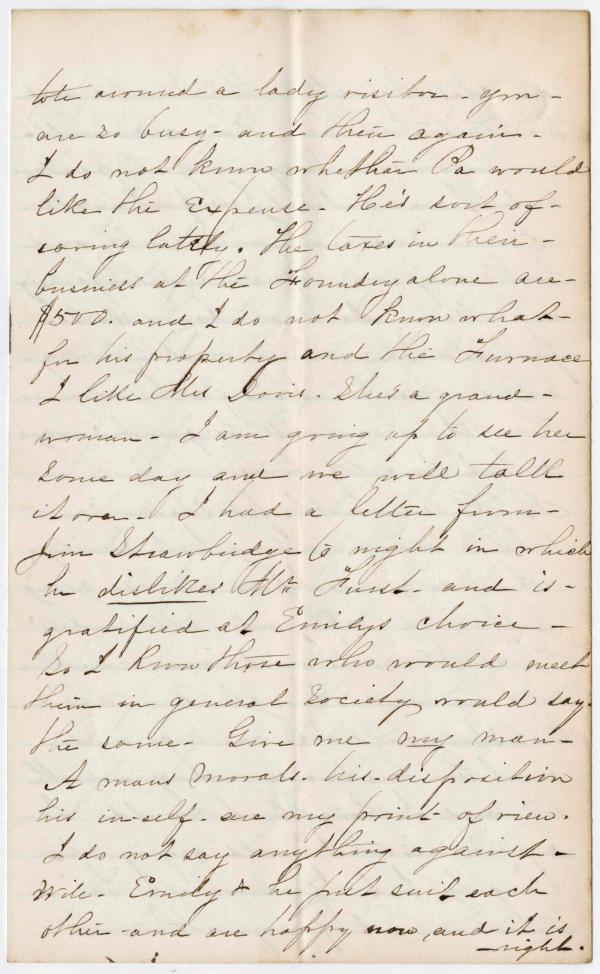 tote around a lady visitor - you -
are so busy - and then again -
I do not know whether Pa would
like the Expense - He's sort of -
caring lately. The taxes in their -
business at the Foundry alone are -
$500. and I do not know what -
for his property and the Furnace
I like Mrs Davis. She's a grand -
woman - I am going up to see her
some day and we will talk
it over - I had a letter from -
Jim Strawbridge to night in which
he dislikes Mr Furst - and is -
gratified at Emilys choice -
So I know those who would meet
them in general society would say -
the same - Give me my man -
A mans morals - his - disposition
his in-self - are my point of view.
I do not say anything against -
Will - Emily & he put suit each
other - and are happy now, and it is
- right.